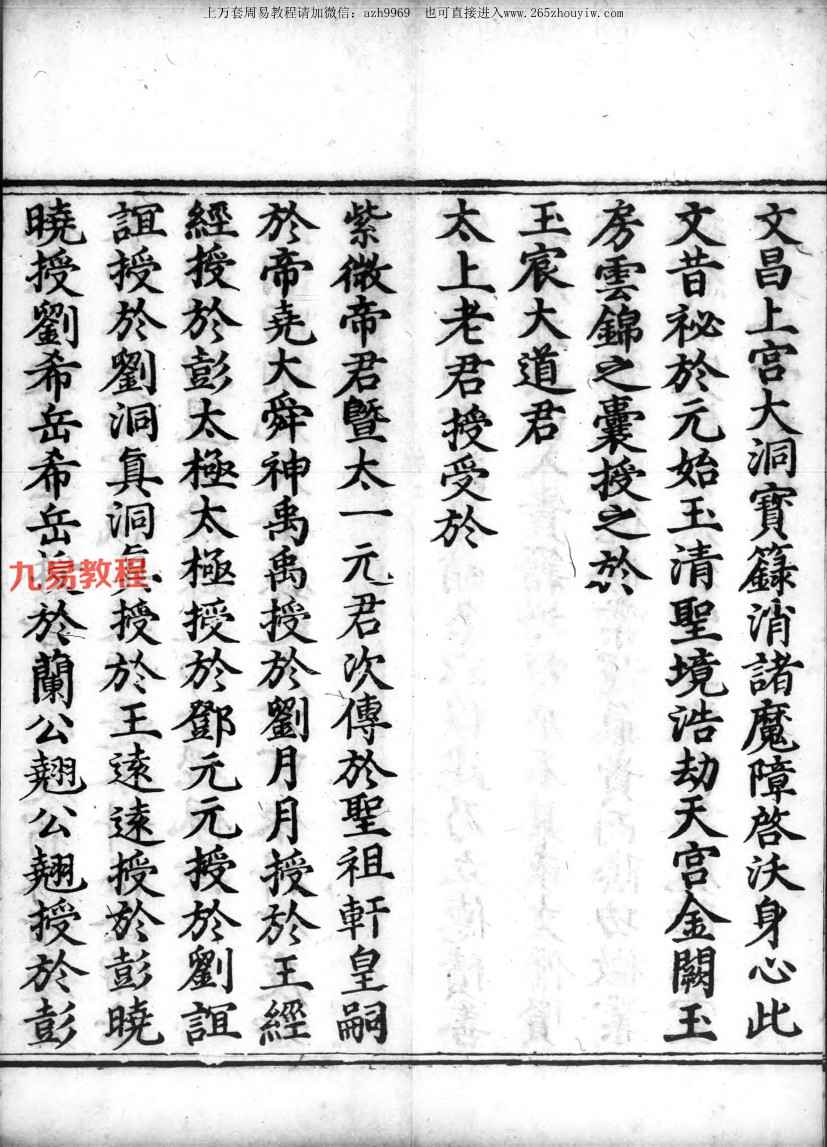 上万套周易教程请加微信：azh9969　也可直接进入www.265zhouyiw.com
文昌上宫大洞寶籙消諸魔障啓沃身心此
文昔祕於元始玉清聖境浩劫天宫金闕玉
房雲錦之囊授之於
玉宸大道君
太上老君授受於
紫微帝君曁太一元君次傳於聖祖軒皇嗣
於帝堯大舜神禹禹授於劉月月授於王經
經授於彭太極太極授於鄧元元授於劉誼
誼授於劉洞真洞真授於王遠遠授於彭曉
曉授劉希岳希岳於蘭公翹公翹授於彭
九易教程